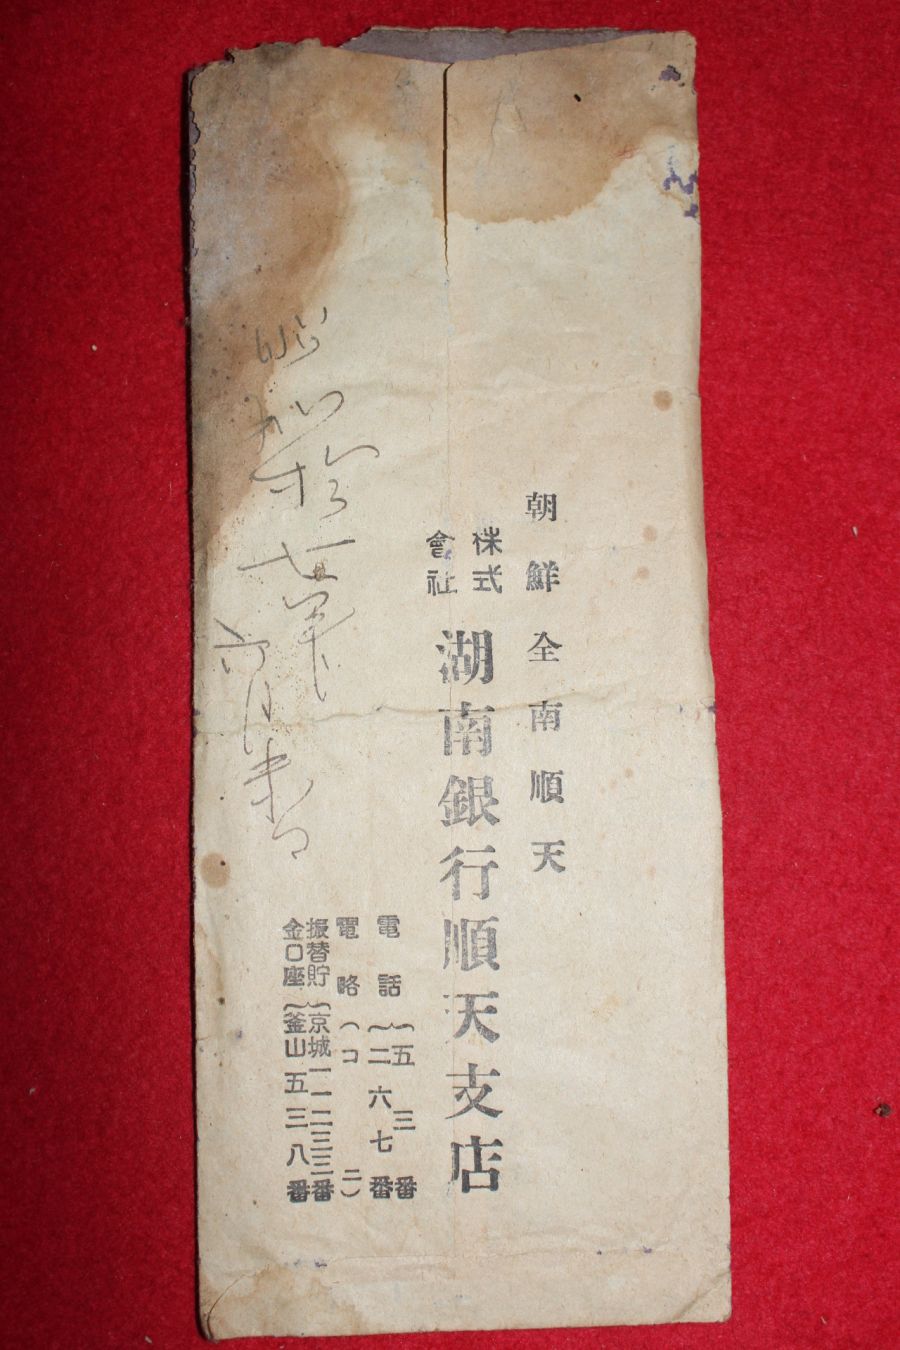 朝鮮全南順天
株式
會社
湖南銀行順天支店
電話{五三番
二六七番
電略(コニ)
振替貯
金口座{京城一一二三三番
釜山五三八番
昭和拾七年
六月末日